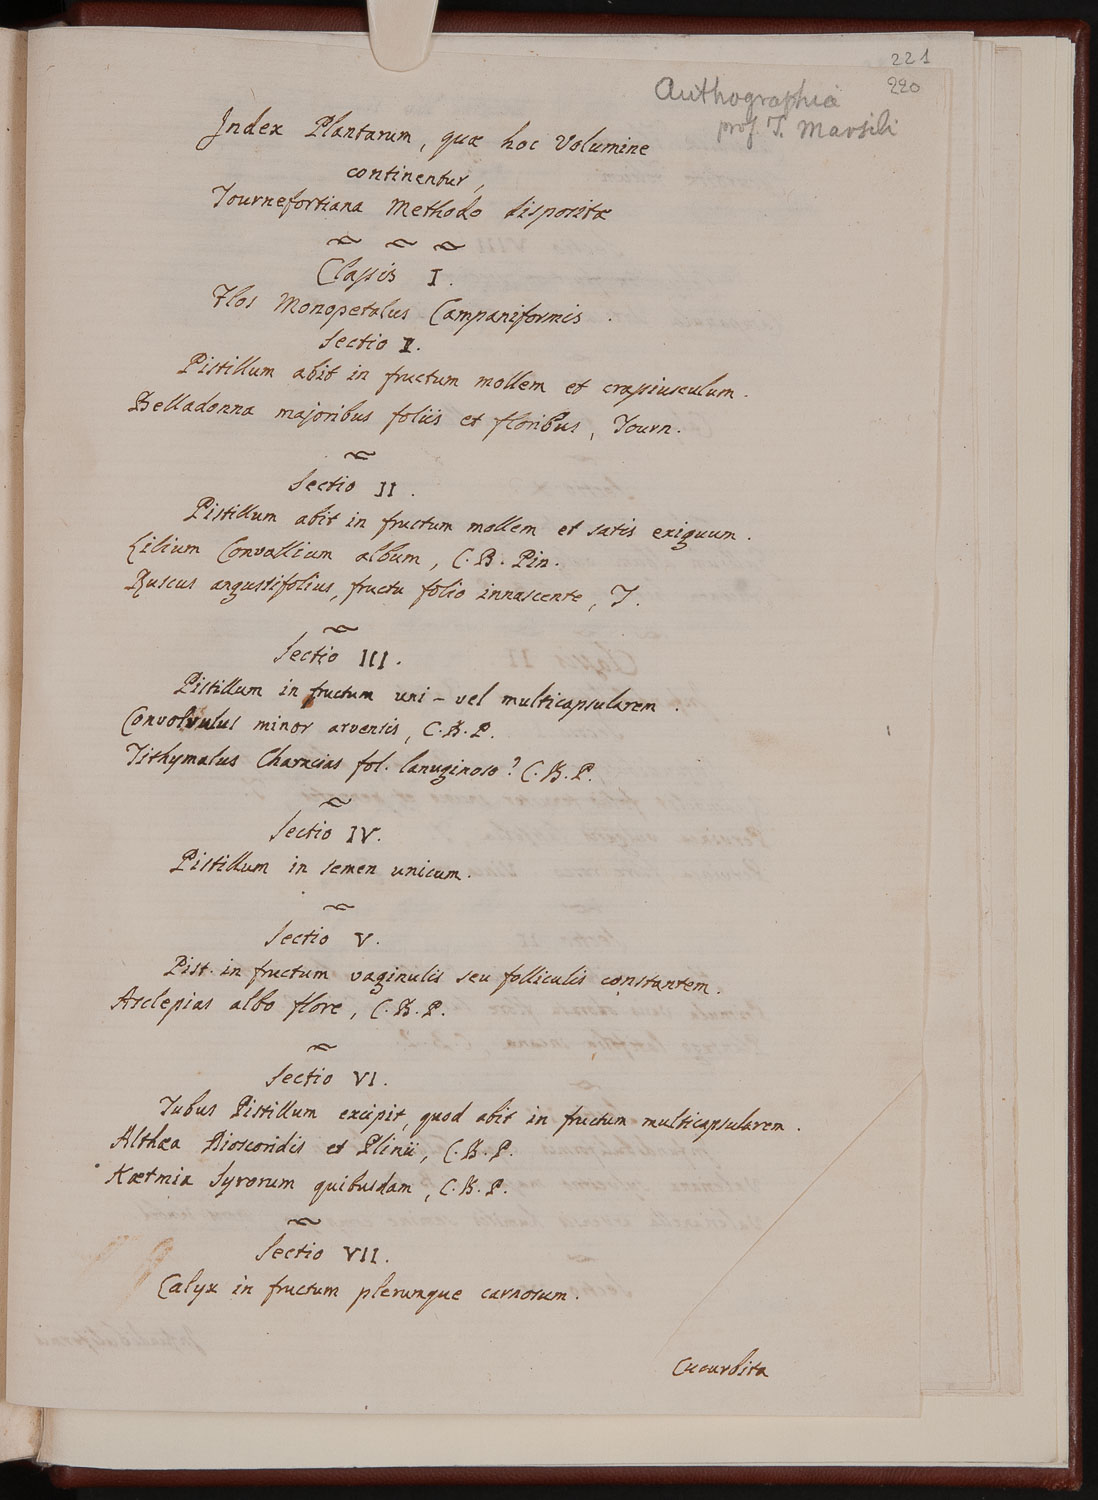 221
220
Authographia
prof. T. Marsili
Index Plantarum, quæ hoc Volumine
continentur,
Tournefortiana Methodo dispositæ
Classis I.
Flos Monopetalus Campaniformis.
Sectio I.
Pistillum abit in fructum mollem et crassiusculum.
Belladonna majoribus foliis et floribus, Tourn.
Sectio II.
Pistillum abit in fructum mollem et satis exiguum.
Lilium Convallium album, C. B. Pin.
Ruscus angustifolius, fructu folio innascente, T.
Sectio III.
Pistillum in fructum uni-vel multicapsularem.
Convolvulus minor arvensis, C. B. P.
Tithymalus Characias fol. lanuginoso? C. B. P.
Sectio IV.
Pistillum in semen unicum.
Sectio V.
Pist. in fructum vaginulis seu folliculis constantem.
Asclepias albo flore, C. B. P.
Sectio VI.
Tubus Pistillum excipit, quod abit in fructum multicapsularem.
Althæa Dioscoridis et Plinii, C. B. P.
Ketmia Syrorum quibusdam, C. B. P.
Sectio VII.
Calyx in fructum plerunque carnosum.
Cucurbita